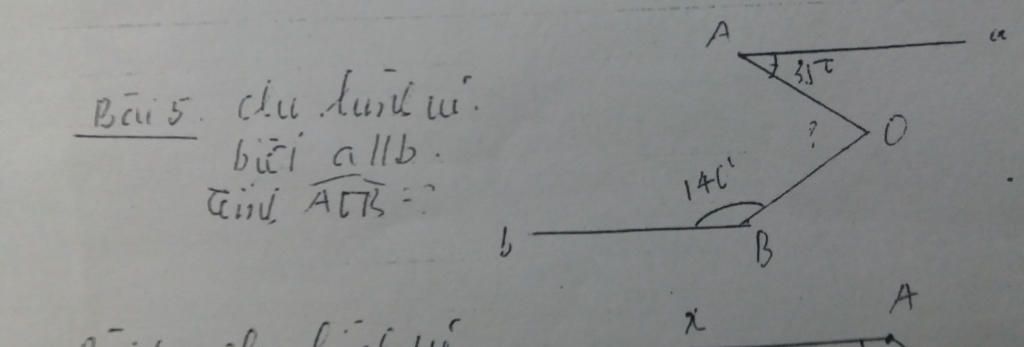 Bài 5. Cho hình vẽ.
biết a//b.
Tính AOB = ?
A
a
35°
?
O
140°
b
B
x
A